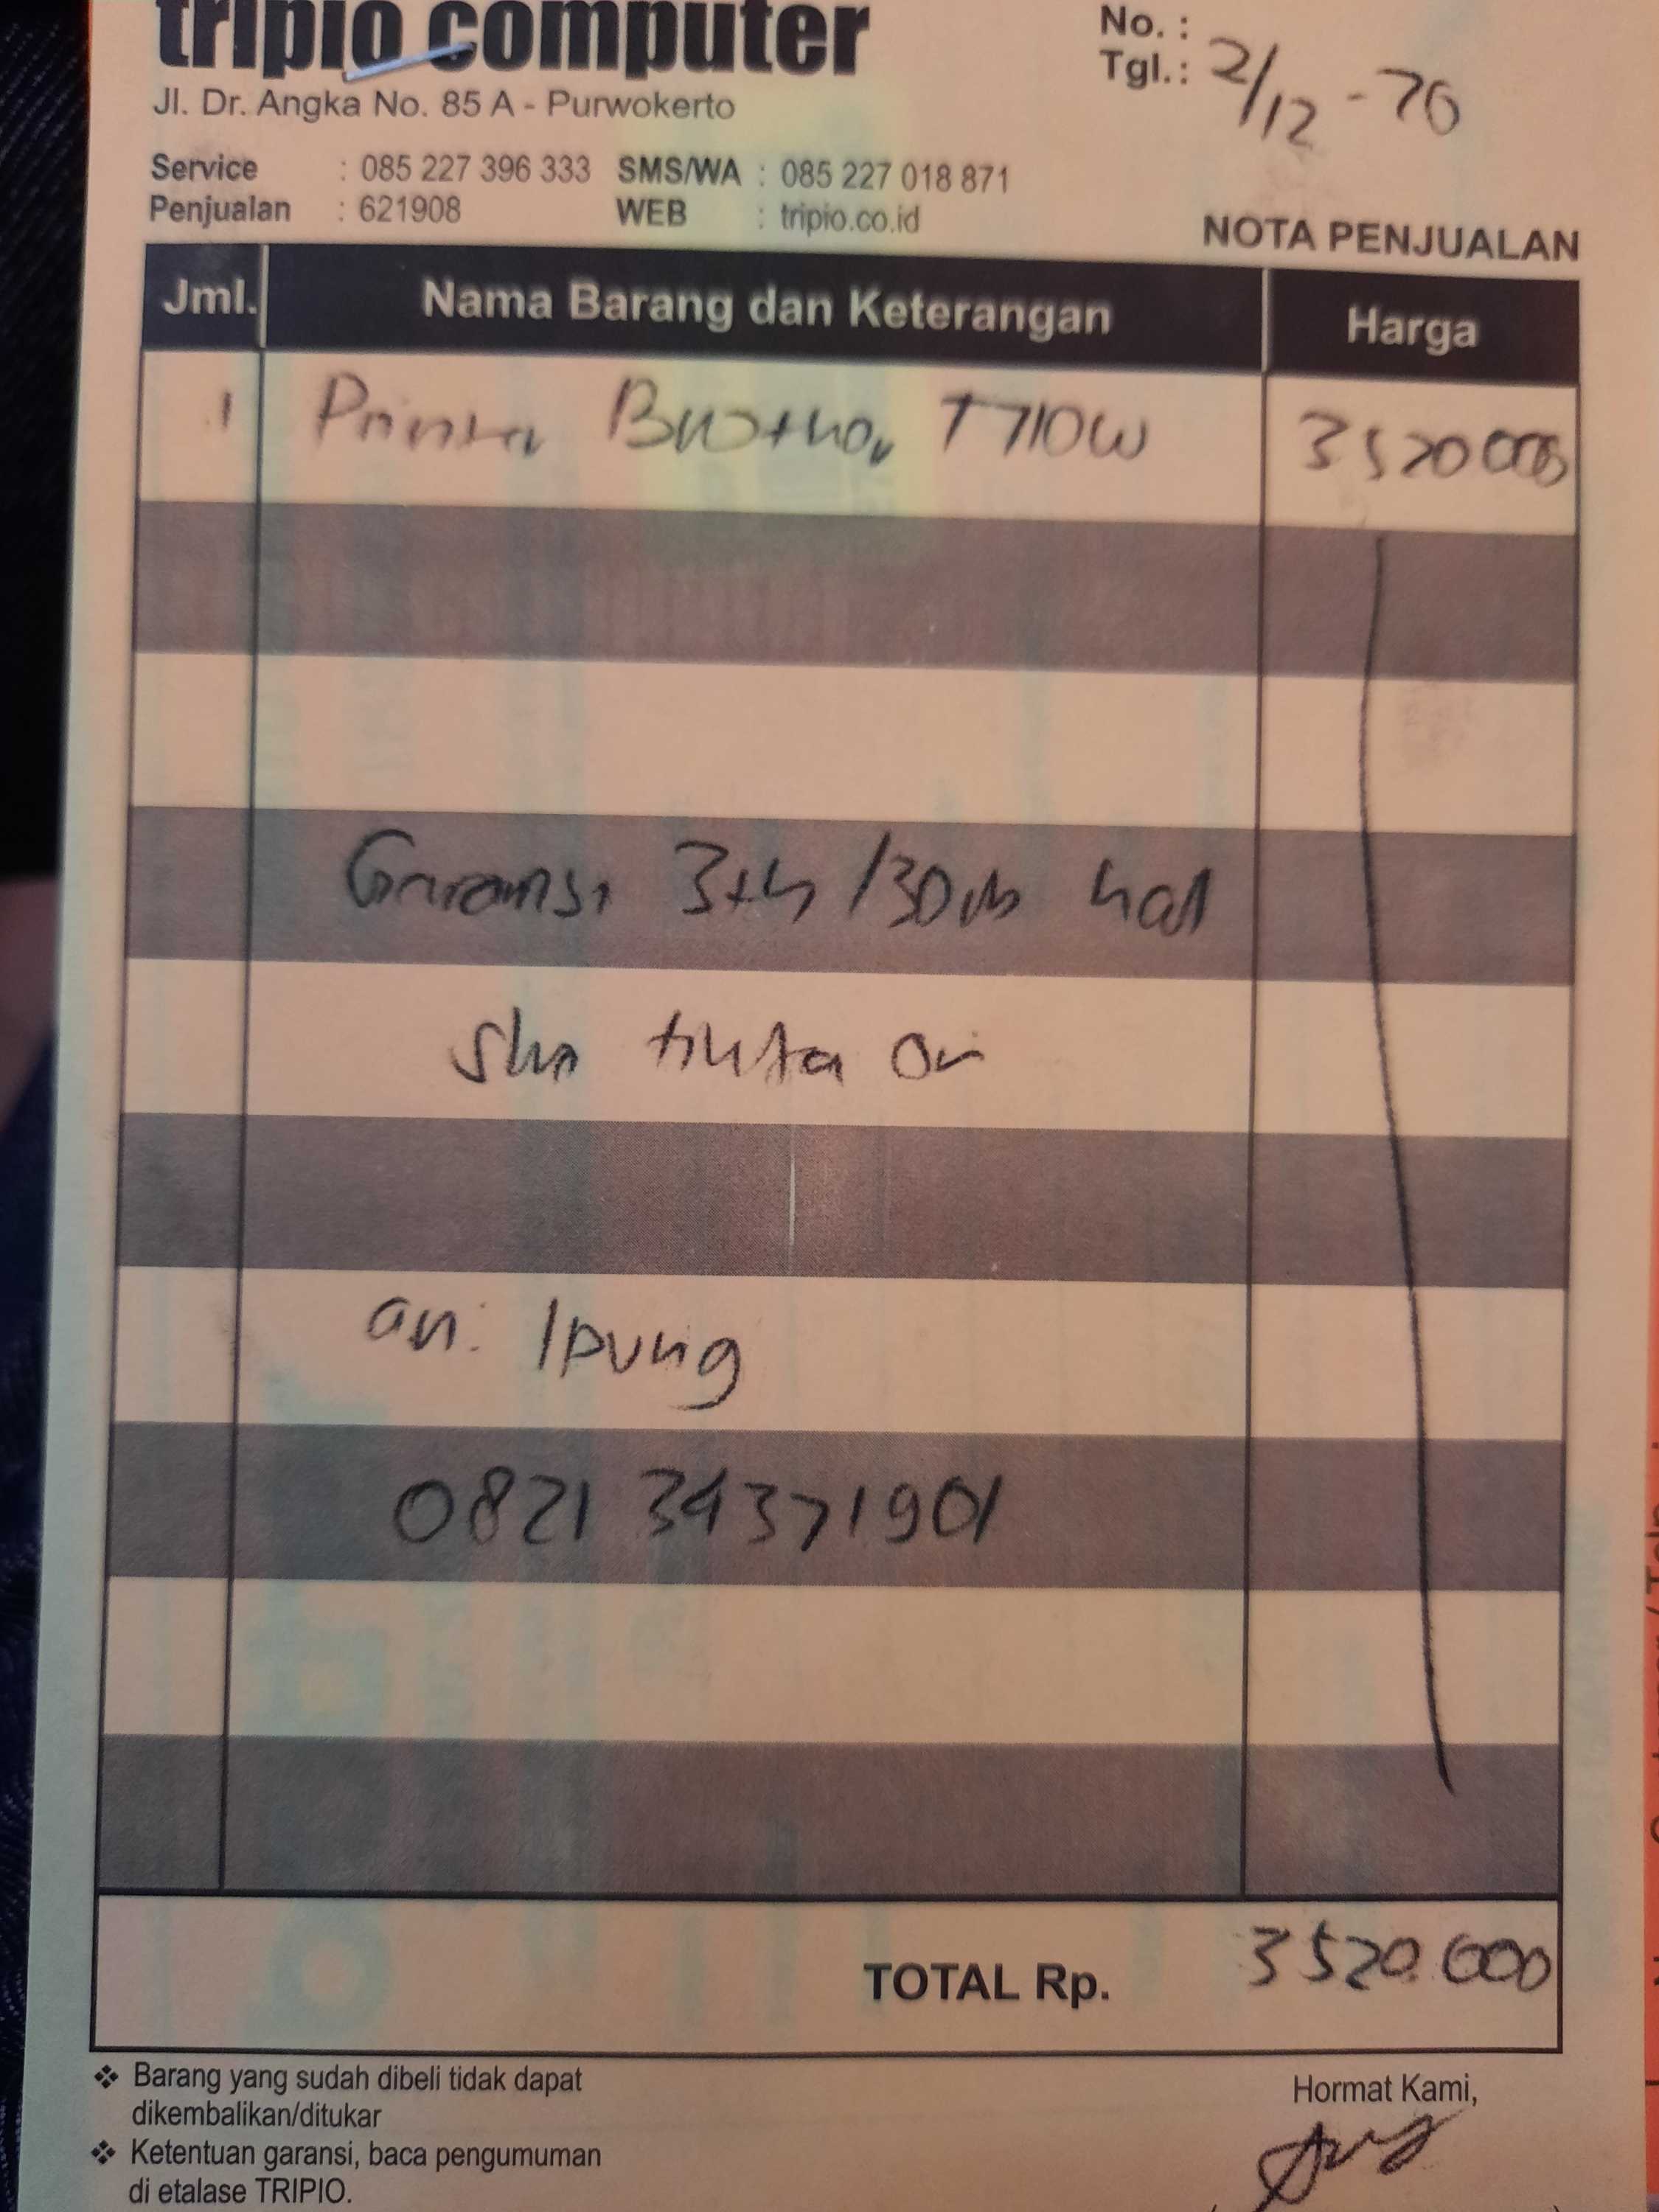 tripio computer
Jl. Dr. Angka No. 85 A - Purwokerto
No. :
Tgl. : 2/12 - 20
Service : 085 227 396 333 SMS/WA : 085 227 018 871
Penjualan : 621908 WEB : tripio.co.id
NOTA PENJUALAN
Jml. Nama Barang dan Keterangan Harga
1 Printer Brother T710W 3520000
Garansi 3th /30rb hal
tinta Ori
an. Ipung
0821 34371901
TOTAL Rp. 3520.000
❖ Barang yang sudah dibeli tidak dapat
dikembalikan/ditukar
❖ Ketentuan garansi, baca pengumuman
di etalase TRIPIO.
Hormat Kami,